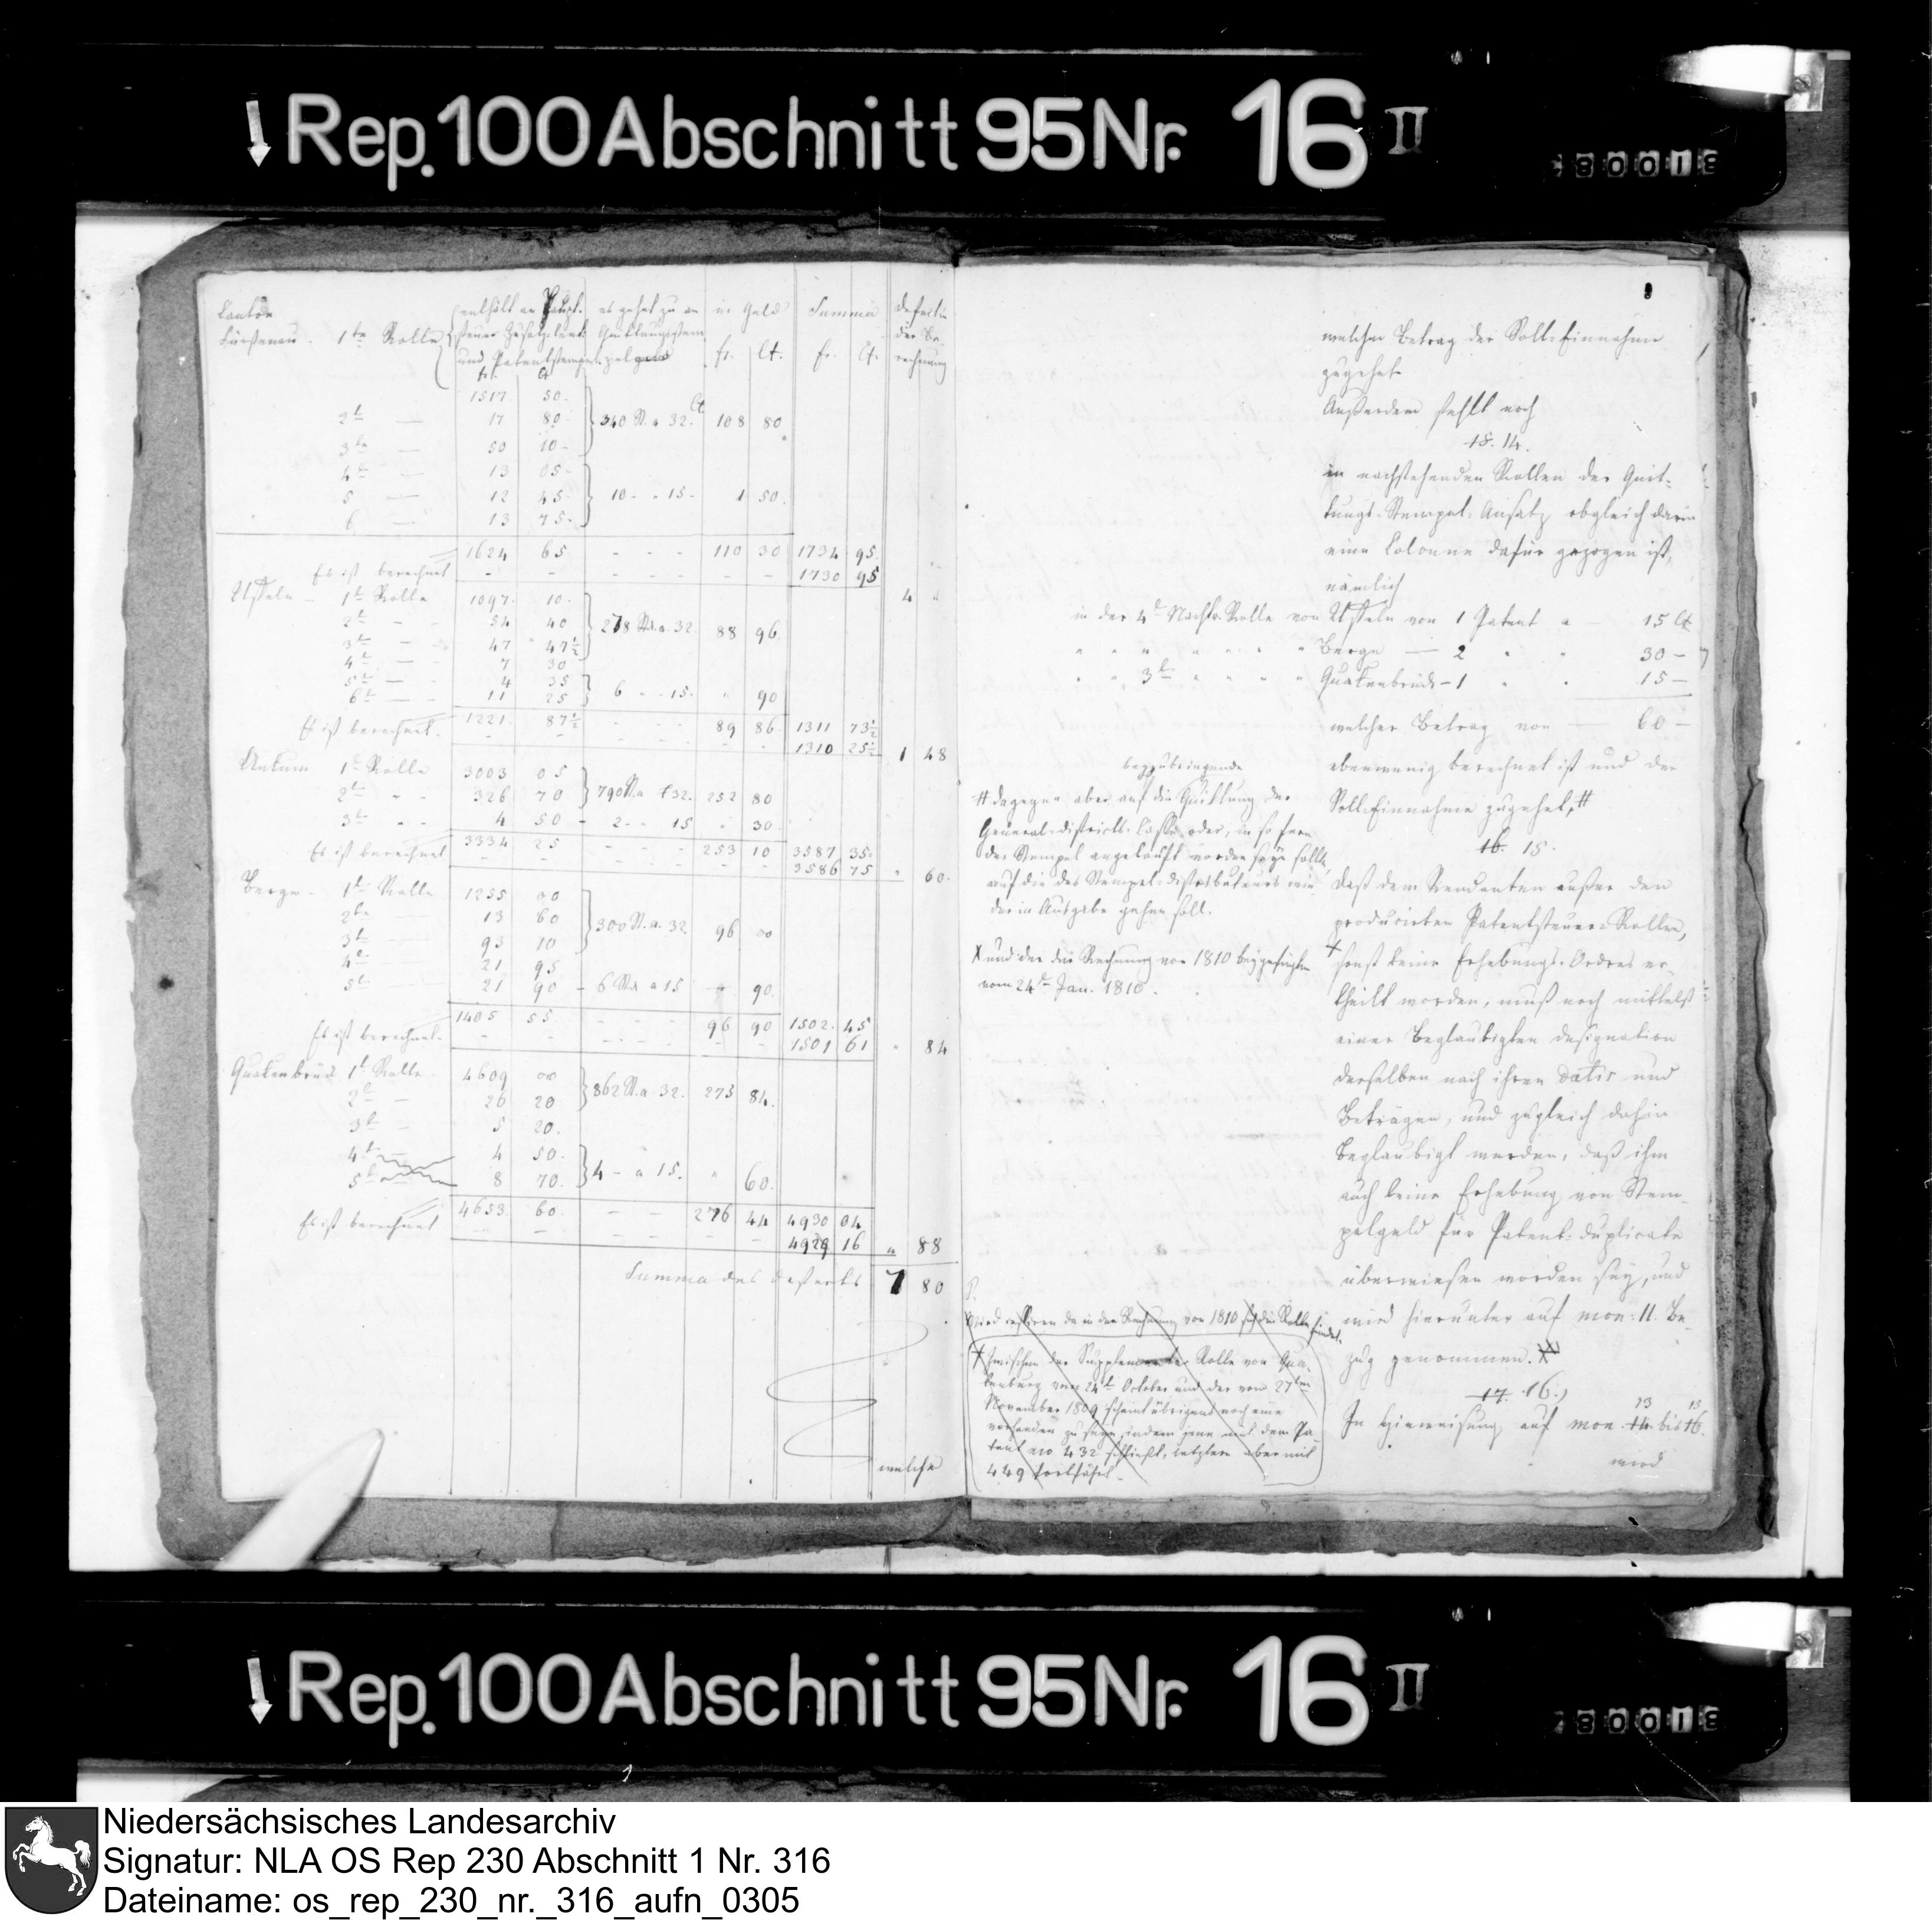 Rep. 100 Abschnitt 95 Nr. 16 II
Canton enthält an Haupt- es gehet zu an in Geld Summa Defect in
Fürstenau. 1te Rolle steuer Zusatz Quittungsstem der Be-
und Patentstempel pelgeld fr. Ct. fr. Ct. rechnung
fr. Ct.
1517 50.
2te — 17 80 340 St. a 32. Ct 108 80
3te — 50 10 -
4te — 13 05 -
5 — 12 45 - 10 - " 15 - 1 50.
6 — 13 75 -
1624 65 - - - 110 30 1734 95.
Es ist berechnet - - - - - - - 1730 95
4 "
Uffeln — 1te Rolle 1097. 10.
2te - - 54 40 278 St. a 32. 88 96.
3te — - 47 47½
4te — - 7 30
5te — - 4 35
6te — - 11 25 6 - - 15. " 90
1221. 87½ - - - 89 86. 1311 73½
Es ist berechnet. - - - - - - - 1310 25½
1 48
Ankum 1te Rolle 3003 05
2te " - 326 70 790 St. a 32. 252 80
3te " - 4 50 - 2 - - 15 " 30.
3334 25 - - - 253 10 3587 35.
Es ist berechnet - - - - - - - 3586 75 " 60.
Berge - 1te Rolle 1255 00
2te 13 60 300 St. a. 32. 96 00
3te 93 10
4te 21 95
5te 21 90 - 6 St. a 15 " 90.
1405 55. - - - 96 90 1502. 45
Es ist berechnet. - - - - - - - 1501 61 " 84
Quakenbrück 1te Rolle - 4609 00
2te — 26 20 862 St. a 32. 275 84.
3te — 5 20.
4te — 4 50.
5te — 8 70. 4 - a 15. " 60.
4653. 60. - - 276 44 4930 04
Es ist berechnet - - - - - - 4929 16 " 88
Summa des Defects 7 80
welche
welcher Betrag der Soll-Einnahme
zugehet
Außerdem fehlt noch
15. 14.
in nachstehenden Rollen der Quit-
tungs-Stempel-Ansatz obgleich darin
eine Colonne dafür gezogen ist,
nämlich
in der 4te Nachtr. Rolle von Uffeln von 1 Patent a — 15 Ct
" " " " " " " Berge — 2 " " 30 —
" " 3te " " " " Quakenbrück - 1 " " 15 —
welcher Betrag von — 60 —
ebenwenig berechnet ist und der
Soll-Einnahme zugehet, #
beyzubringende
# dagegen aber auf die Quittung der
General-Districts-Casse oder, in so fern
der Stempel angekauft worden seyn sollte,
auf die des Stempel-Distributeurs wie-
der in Ausgabe gehen soll.
16. 15.
Daß dem Rendanten außer den
producirten Patentsteuer-Rollen,
X und der der Rechnung von 1810 beygefügten
vom 24te Jan. 1810.
X sonst keine Erhebungs-Ordres er-
theilt worden, muß noch mittelst
einer beglaubigten Designation
derselben nach ihren Datis und
Beträgen, und zugleich dahin
beglaubigt werden, daß ihm
auch keine Erhebung von Stem-
pelgeld für Patent-Duplicate
überwiesen worden sey, und
wird hierunter auf mon: 11. Be-
zug genommen. X
Wird cessiren da in der Rechnung von 1810 sich die Rolle findet.
X Zwischen der Supplementar Rolle von Qua-
kenburg vom 24te October und der vom 27ten
November 1809 scheint übrigens noch eine
vorhanden zu seyn, indem jene mit dem Pa-
tent no 432 schließt, letztere aber mit
449 fortfährt.
17. 16.)
In Hinweisung auf mon. 14. 13 bis 16. 15
wird
Rep. 100 Abschnitt 95 Nr. 16 II
Niedersächsisches Landesarchiv
Signatur: NLA OS Rep 230 Abschnitt 1 Nr. 316
Dateiname: os_rep_230_nr._316_aufn_0305